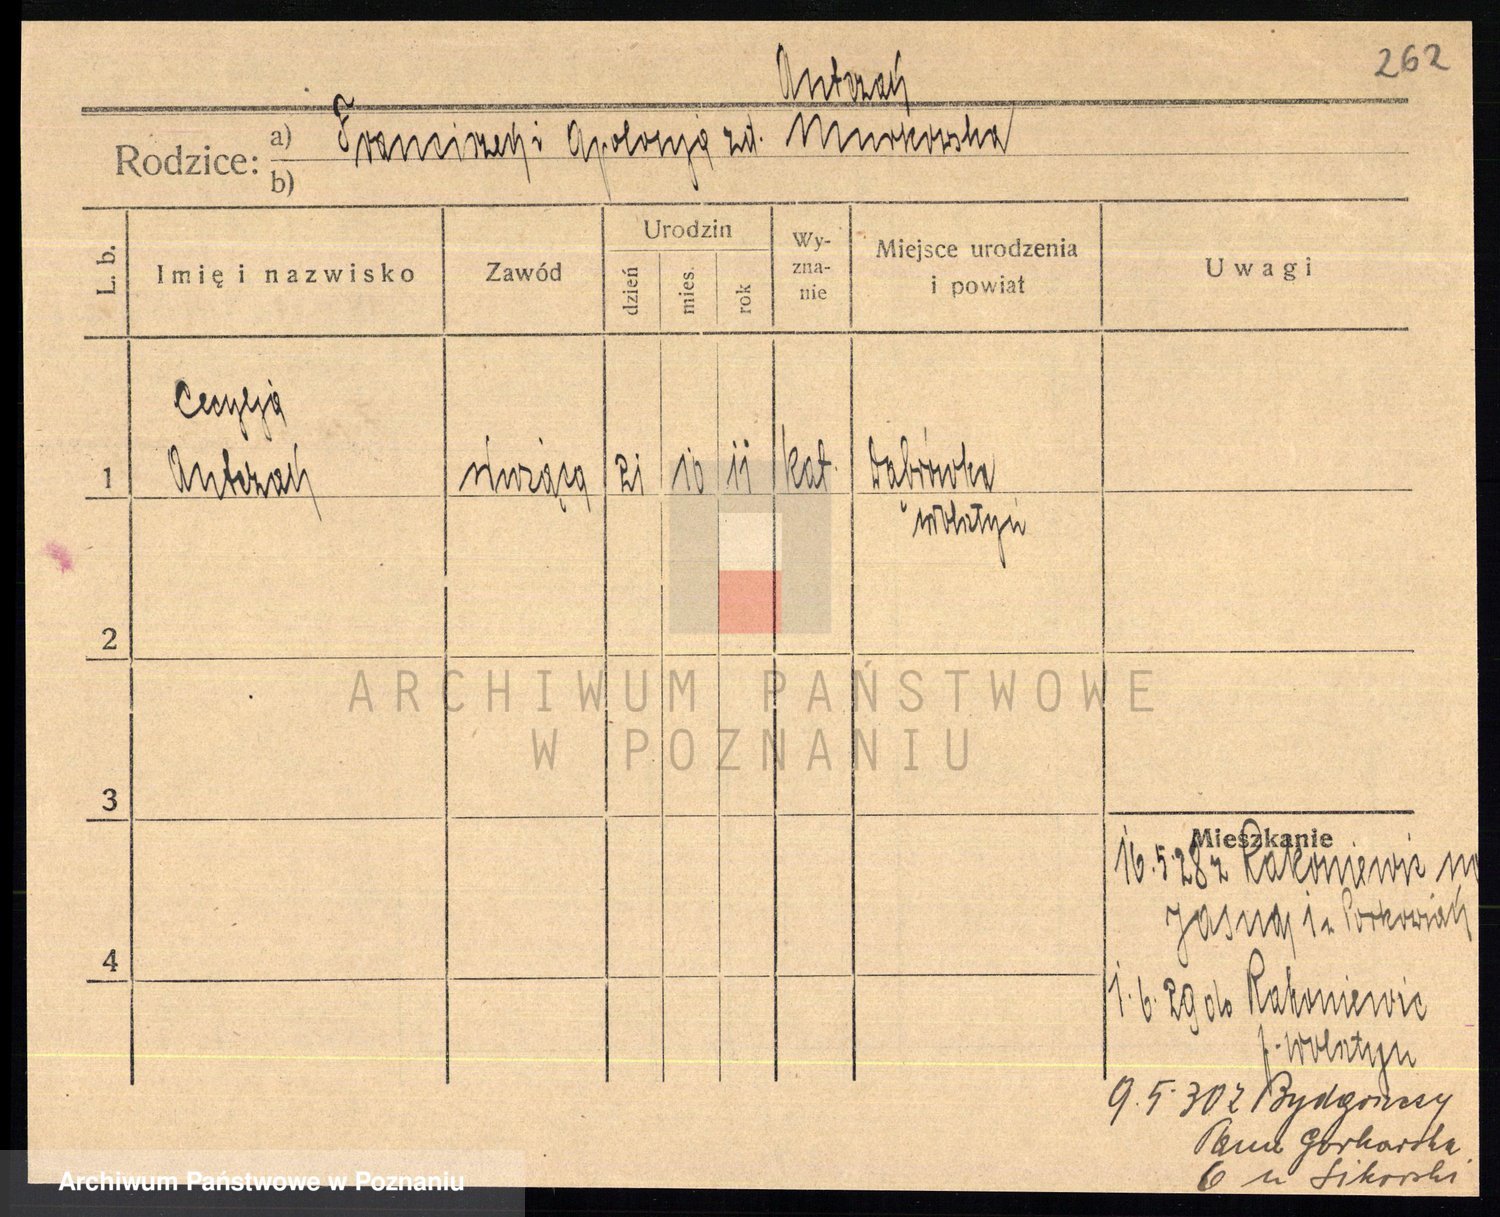 262
Antczak
Rodzice: a) Franciszek i Apolonja zd. Murkowska
b)
L. b.
Imię i nazwisko
Zawód
Urodzin
dzień
mies.
rok
Wy-
zna-
nie
Miejsce urodzenia
i powiat
Uwagi
Cecylja
1 Antczak służąca 21 10 11 kat. Dąbrówka
Wolsztyn
2
ARCHIWUM PAŃSTWOWE
W POZNANIU
3
Mieszkanie
16.5.28 z Rakoniewic
Jasna 1
4
1.6.29 do Rakoniewic
p. Wolsztyn
9.5.30 z Bydgoszczy
6 u Sikorski
Archiwum Państwowe w Poznaniu